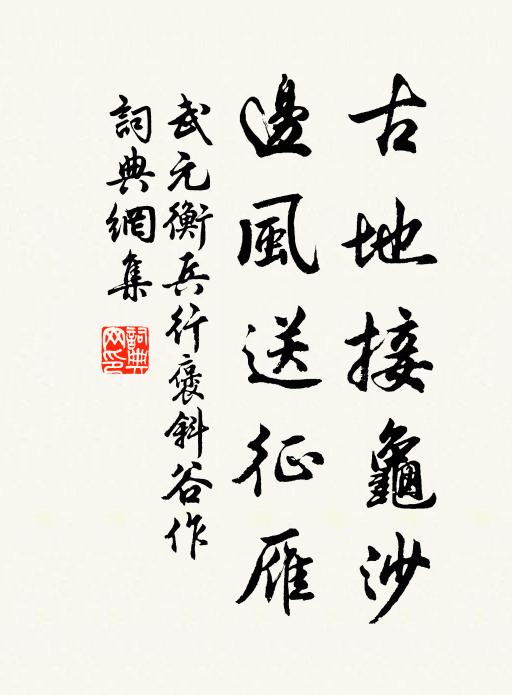 古地接龜沙
邊風送征雁
武元衡兵行褒斜谷作
詞典網集
詞典網印